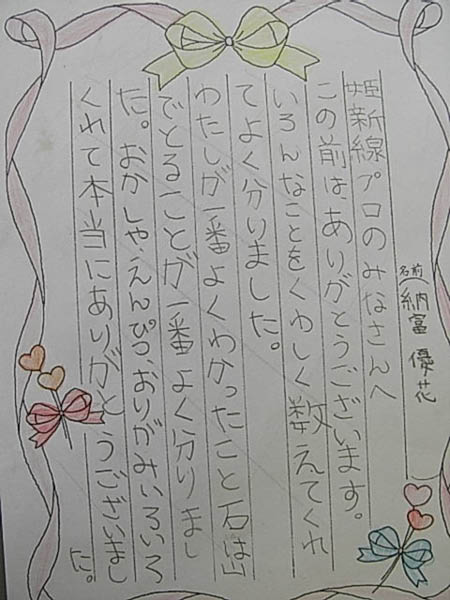 名前(納富 優花
姫新線プロのみなさんへ
この前は、ありがとうございます。
いろんなことをくわしく教えてくれ
てよく分いました。
わたしが一番よくわかったこと石は山
でとることが一番よく分りまし
た。おかしや、えんぴつ、おりがみいろいろ
くれて本当にありがとうございまし
た。